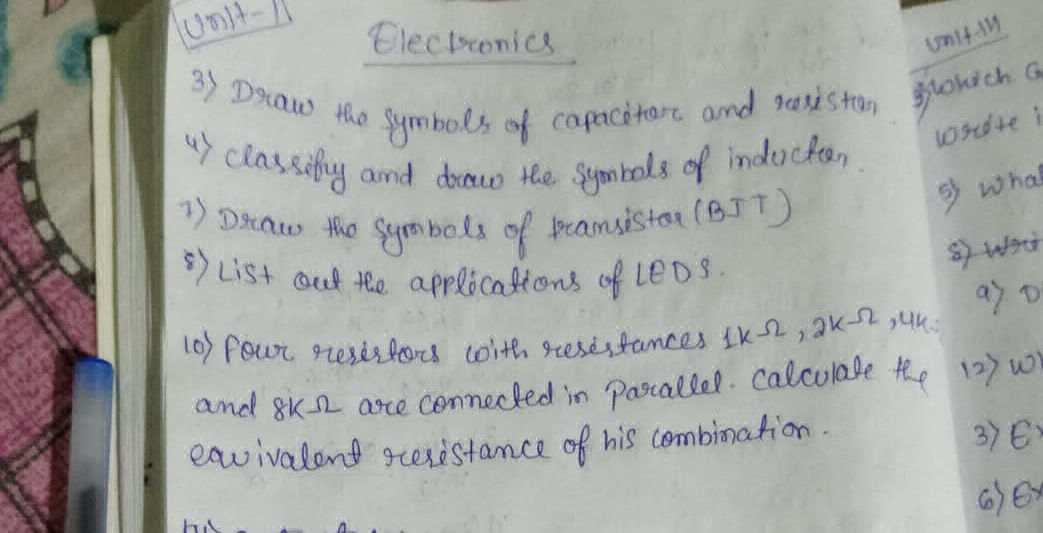 Unit-II
Electronics
3) Draw the symbols of capacitor and resistor
4) classify and draw the symbols of inductor.
7) Draw the symbols of transistor (BJT)
8) List out the applications of LEDS.
10) Four resistors with resistances 1kΩ, 2kΩ, 4k
and 8kΩ are connected in parallel. Calculate the
equivalent resistance of his combination.
Unit-III
3) which G
write i
5) What
8) Writ
9) D
12) W
3) Ex
6) Ex